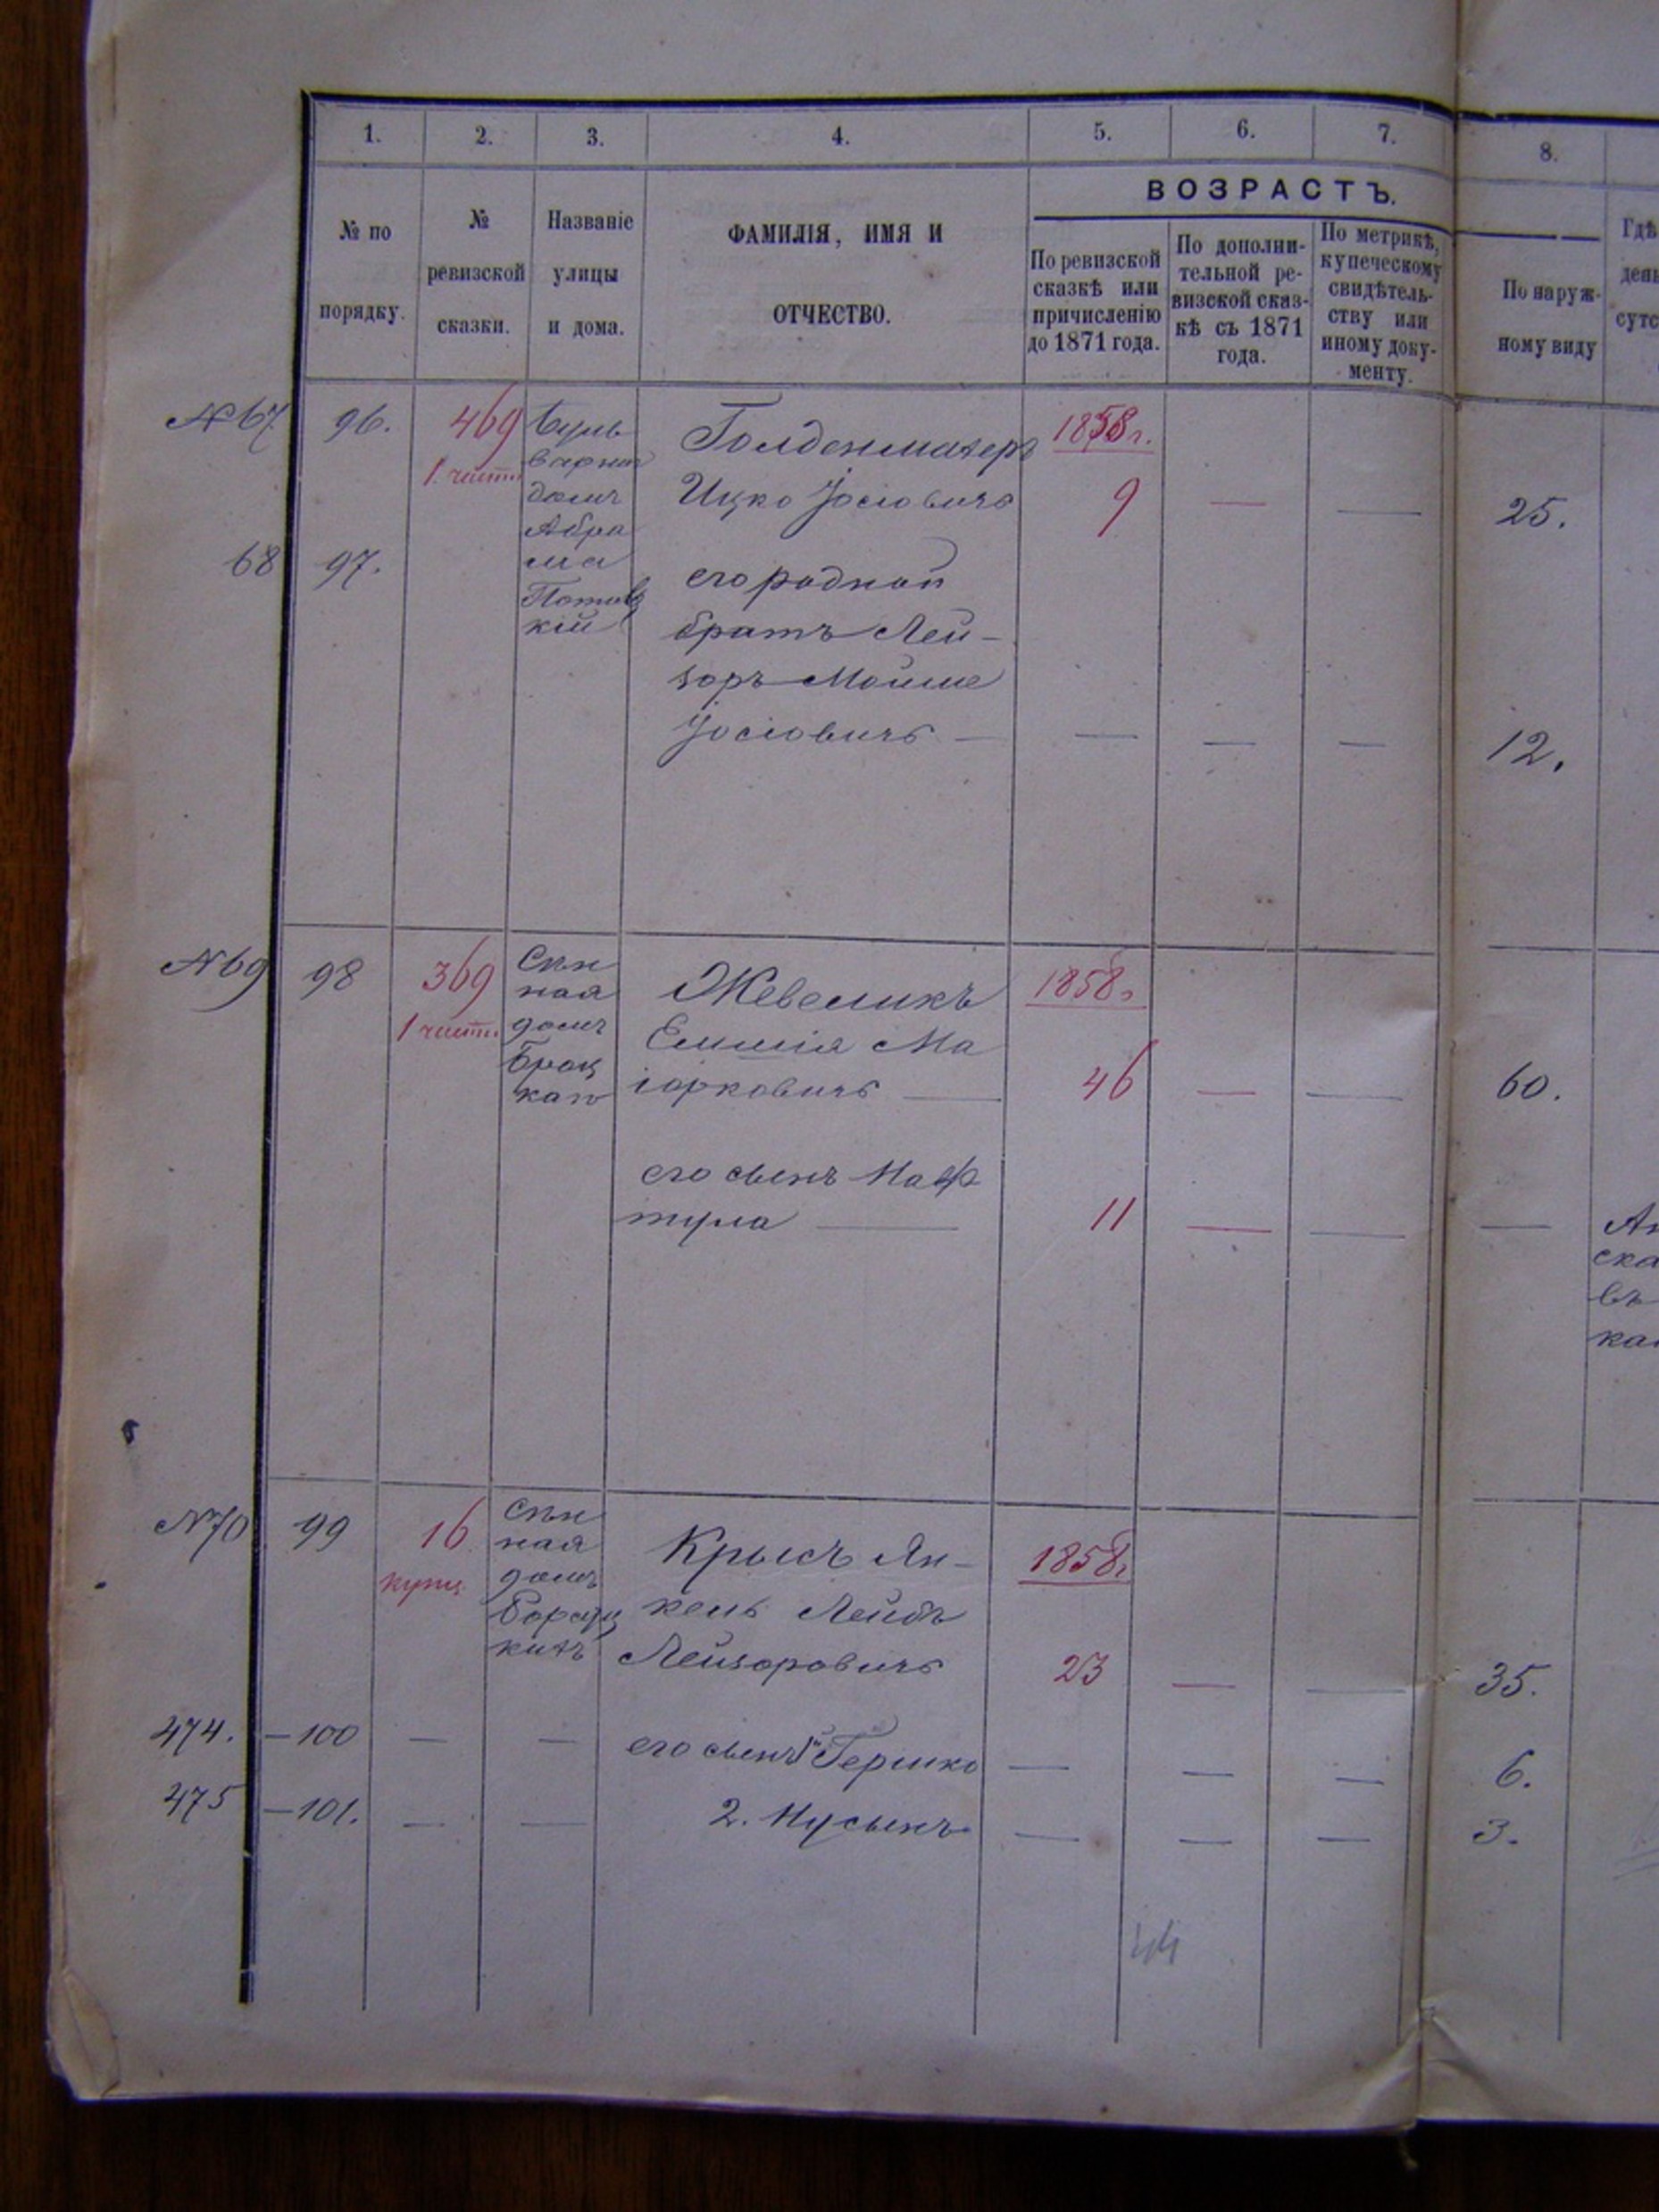 1. 2. 3. 4. 5. 6. 7. 8.
ВОЗРАСТЪ.
№ по
порядку.
№
ревизской
сказки.
Названіе
улицы
и дома.
ФАМИЛІЯ, ИМЯ И
ОТЧЕСТВО.
По ревизской
сказкѣ или
причисленію
до 1871 года.
По дополни-
тельной ре-
визской сказ-
кѣ съ 1871
года.
По метрикѣ,
купеческому
свидѣтель-
ству или
иному доку-
менту.
По наруж-
ному виду
Гдѣ
сутс
№ 67. 96. 469
1 части
Буль
варная
домъ
Абра
ма
1858 г.
Ицко Іосіовичъ 9 — — 25.
68 97.
его родной
братъ Лей-
зоръ Мойше
Іосіовичъ — — — — 12.
№ 69 98 369
1 части
Сѣн
ная
домъ
Жевеликъ 1858 г.
Ма
іорковичъ — 46 — — 60.
его сынъ Наф
тула — 11 — — —
ска
въ
№ 70 99 16
купц.
Сѣн
ная
домъ
Крысъ Ян- 1858 г.
кель Лейбъ
Лейзоровичъ 23 — — 35.
474. — 100 — — его сынъ Гершко — — — 6.
475 — 101. — — 2. Нусынъ — — — 3.